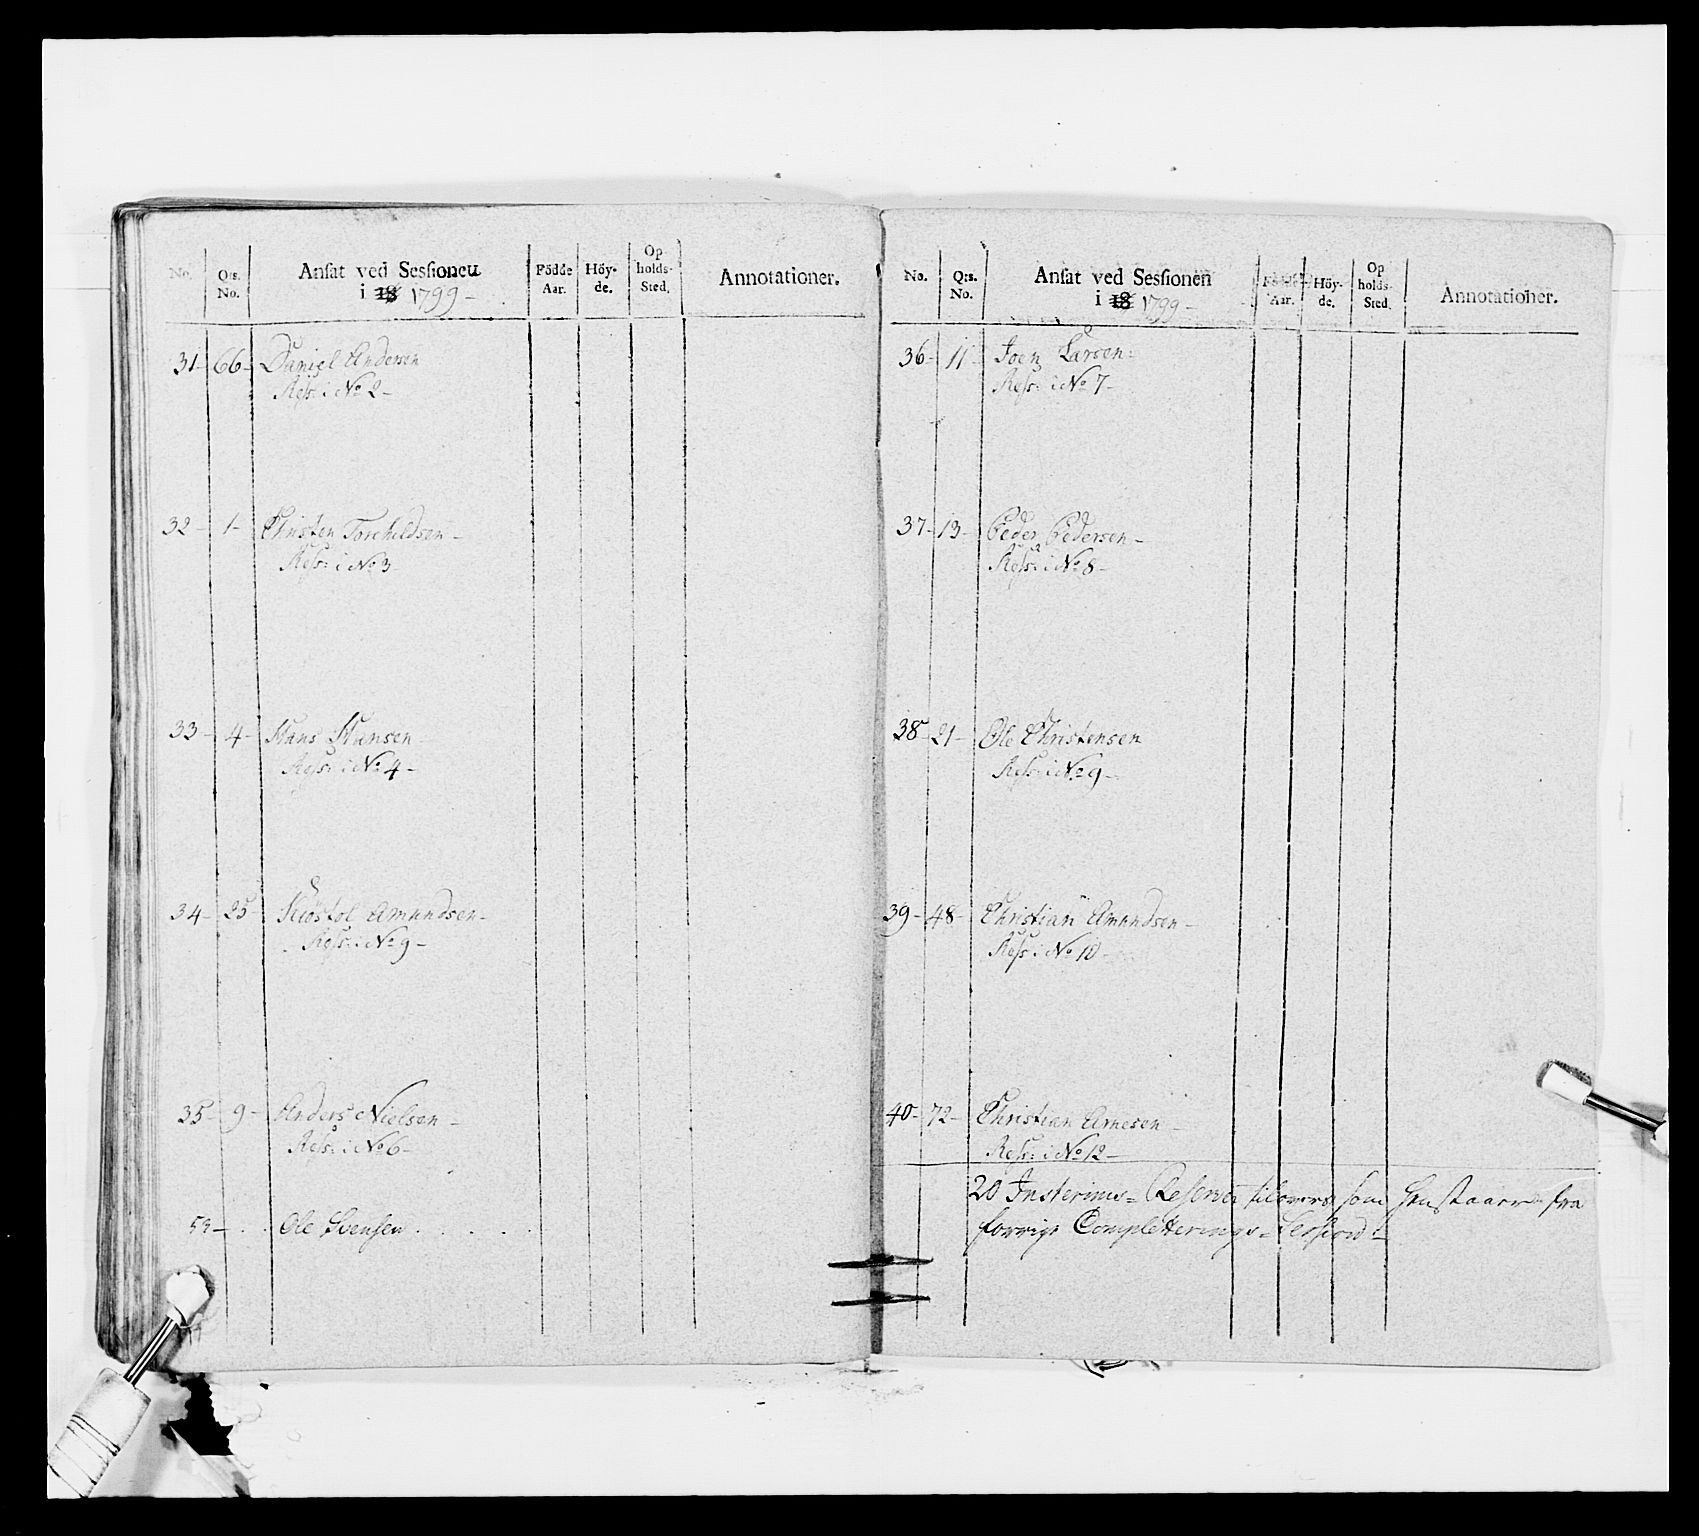 No. Q:s. No. Ansat ved Sessionen i 18 1799 - Födde Aar. Höy-de. Op holds-Sted. Annotationer.
31- 66- Daniel Andersen
Ress: i No 2 -
32- 1- Christen Torchildsen -
Ress: i No 3
33- 4- Hans Hansen
Ress: i No 4 -
34- 25 Kiöstol Amundsen -
Ress: i No 9 -
35- 9- Anders Nielsen -
Ress: i No 6 -
59 - . . Ole Svensen . . . .
No. Q:s. No. Ansat ved Sessionen i 18 1799 - Födde Aar. Höy-de. Op holds-Sted. Annotationer.
36- 11- Joen Larsen
Ress: i No 7 -
37- 13- Peder Pedersen -
Ress: i No 8 -
38 21- Ole Christensen
Ress: i No 9 -
39- 48- Christian Amundsen -
Ress: i No 10 -
40- 72- Christian Arnesen -
Ress: i No 12 -
20 Insterims = Reserver tilovers som henstaaer fra
forrige Completterings =